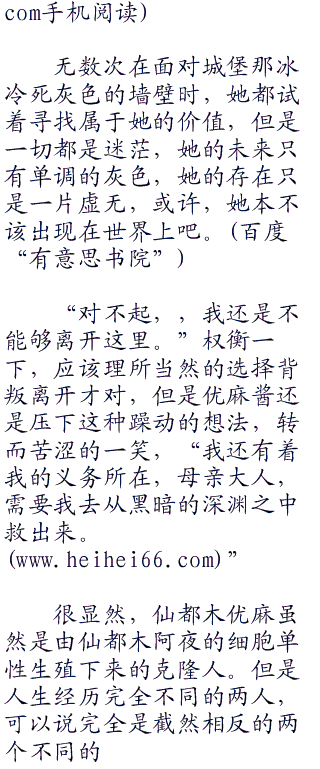 com手机阅读)
无数次在面对城堡那冰
冷死灰色的墙壁时，她都试
着寻找属于她的价值，但是
一切都是迷茫，她的未来只
有单调的灰色，她的存在只
是一片虚无，或许，她本不
该出现在世界上吧。(百度
“有意思书院”)
“对不起，，我还是不
能够离开这里。”权衡一
下，应该理所当然的选择背
叛离开才对，但是优麻酱还
是压下这种躁动的想法，转
而苦涩的一笑，“我还有着
我的义务所在，母亲大人，
需要我去从黑暗的深渊之中
救出来。
(www.heihei66.com)”
很显然，仙都木优麻虽
然是由仙都木阿夜的细胞单
性生殖下来的克隆人。但是
人生经历完全不同的两人，
可以说完全是截然相反的两
个不同的